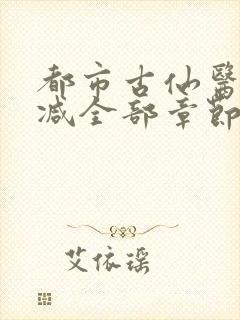 都市古仙醫
减全部章節
艾依瑶